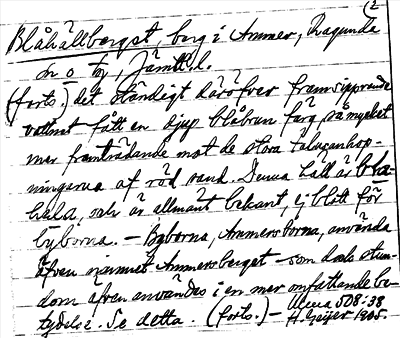 (2
Blåhällberget, berg i Ammer, Ragunda
sn o tg, Jämtl. l.
(forts.) det ständigt däröfver framsipprande
vattnet fått en djup blåbrun färg, så mycket
mer framträdande mot de stora
ningarna af röd sand. Denna häll är blå-
häla, och är allmänt bekant, ej blott för
byborna. — Byborna, Ammersborna, använda
äfven namnet Ammersberget — som dock stun-
dom äfven användes i en mer omfattande be-
tydelse. Se detta. (forts.) — 508:38
H. Geijer 1905.